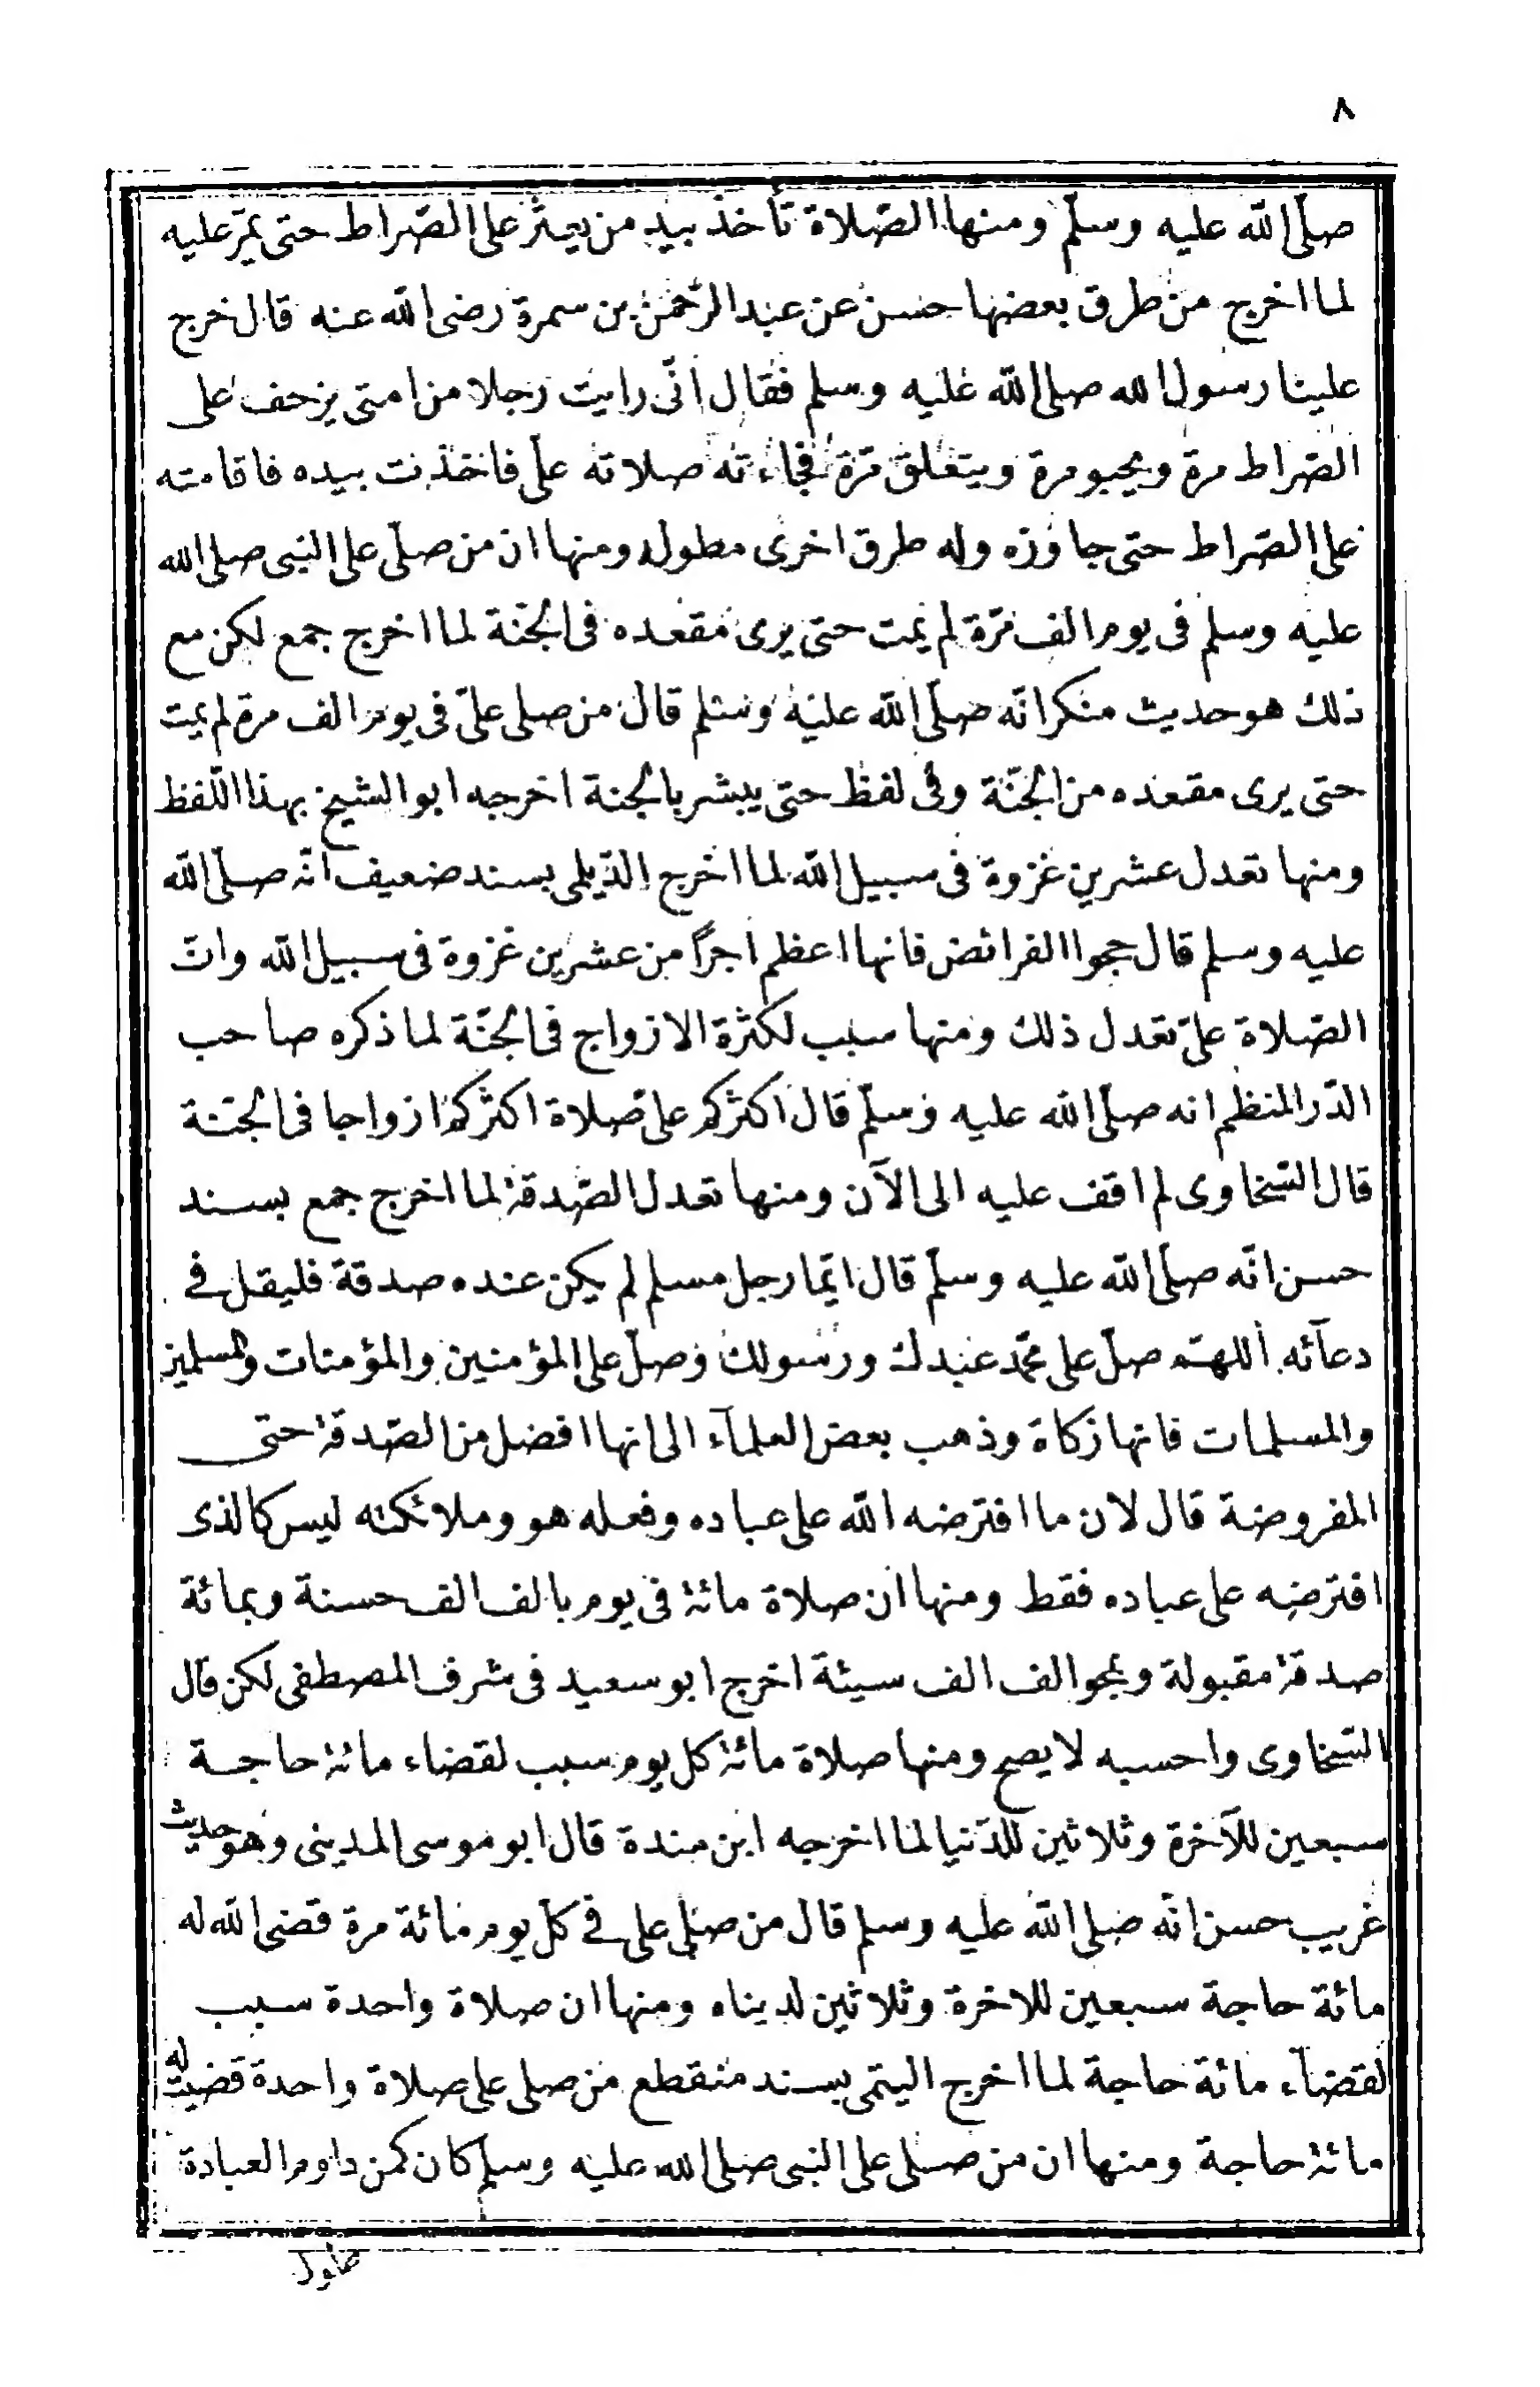 ٨
صلّى الله عليه وسلّم ومنها الصّلاة تأخذ بيد من يعثر على الصّراط حتى يمرّ عليه
لما اخرج من طرق بعضها حسن عن عبد الرّحمن بن سمرة رضى الله عنه قال خرج
علينا رسول الله صلى الله عليه وسلم فقال انّى رايت رجلا من امتى يزحف على
الصّراط مرة ويحبو مرة ويتعلق مرّة فجاءته صلاته علىّ فاخذت بيده فاقامته
على الصّراط حتى جاوزه وله طرق اخرى مطوله ومنها ان من صلّى على النبى صلى الله
عليه وسلم فى يوم الف مرّة لم يمت حتى يرى مقعده فى الجنّة لما اخرج جمع لكن مع
ذلك هو حديث منكر انّه صلّى الله عليه وسلم قال من صلى علىّ فى يوم الف مرة لم يمت
حتى يرى مقعده من الجنّة وفى لفظ حتى يبشر بالجنة اخرجه ابو الشيخ بهذا اللّفظ
ومنها تعدل عشرين غزوة فى سبيل الله لما اخرج الدّيلمى بسند ضعيف انّه صلّى الله
عليه وسلم قال حجوا الفرائض فانها اعظم اجرًا من عشرين غزوة فى سبيل الله وانّ
الصّلاة علىّ تعدل ذلك ومنها سبب لكثرة الازواج فى الجنّة لما ذكره صاحب
الدّر المنظم انه صلّى الله عليه وسلّم قال اكثركم علىّ صلاة اكثركم ازواجا فى الجنّة
قال السّخاوى لم اقف عليه الى الآن ومنها تعدل الصّدقة لما اخرج جمع بسند
حسن انّه صلّى الله عليه وسلّم قال ايّما رجل مسلم لم يكن عنده صدقة فليقل فى
دعآئه اللهمّ صلّ على محمّد عبدك ورسولك وصلّ على المؤمنين والمؤمنات والمسلمين
والمسلمات فانها زكاة وذهب بعض العلمآء الى انها افضل من الصّدقة حتى
المفروضة قال لان ما افترضه الله على عباده وفعله هو وملائكته ليس كالذى
افترضه على عباده فقط ومنها ان صلاة مائة فى يوم بالف الف حسنة وبمائة
صدقة مقبولة ويمحو الف الف سيئة اخرج ابو سعيد فى شرف المصطفى لكن قال
السّخاوى واحسبه لا يصح ومنها صلاة مائة كل يوم سبب لقضاء مائة حاجة
سبعين للآخرة وثلاثين للدّنيا لما اخرجه ابن مندة قال ابو موسى المدينى وهو حديث
غريب حسن انّه صلى الله عليه وسلم قال من صلى على فى كلّ يوم مائة مرة قضى الله له
مائة حاجة سبعين للاخرة وثلاثين لدنياه ومنها ان صلاة واحدة سبب
لقضآء مائة حاجة لما اخرج التيمى بسند منقطع من صلى على صلاة واحدة قضيت له
مائة حاجة ومنها ان من صلى على النبى صلى الله عليه وسلم كان كمن داوم العبادة
طول